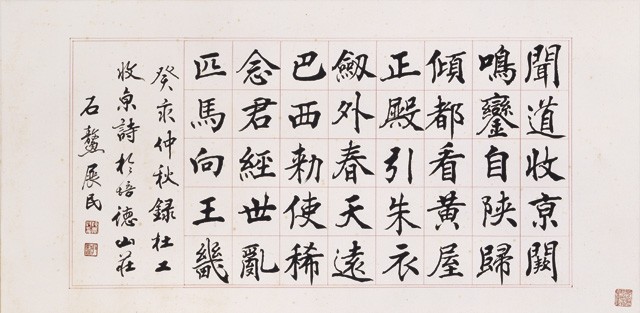 聞道收京闕
鳴鑾自陝歸
傾都看黃屋
正殿引朱衣
劔外春天遠
巴西勅使稀
念君經世亂
匹馬向王畿
癸亥仲秋錄杜工
收京詩於培德山莊
石鰲展民